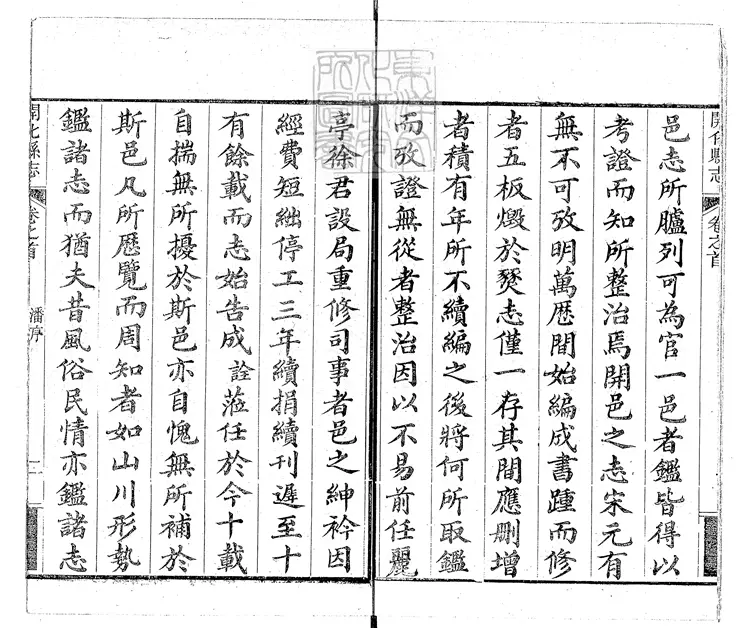 開化縣志
卷之首
邑志所臚列可為官一邑者鑑皆得以
考證而知所整治焉開邑之志宋元有
無不可攷明萬厯間始編成書踵而修
者五板燬於燹志僅一存其間應刪增
者積有年所不續編之後將何所取鑑
而攷證無從者整治因以不易前任麗
亭徐君設局重修司事者邑之紳衿因
經費短絀停工三年續捐續刊遲至十
有餘載而志始告成詮蒞任於今十載
自揣無所擾於斯邑亦自愧無所補於
斯邑凡所歷覽而周知者如山川形勢
鑑諸志而猶夫昔風俗民情亦鑑諸志
開化縣志
卷之首
潘序
二